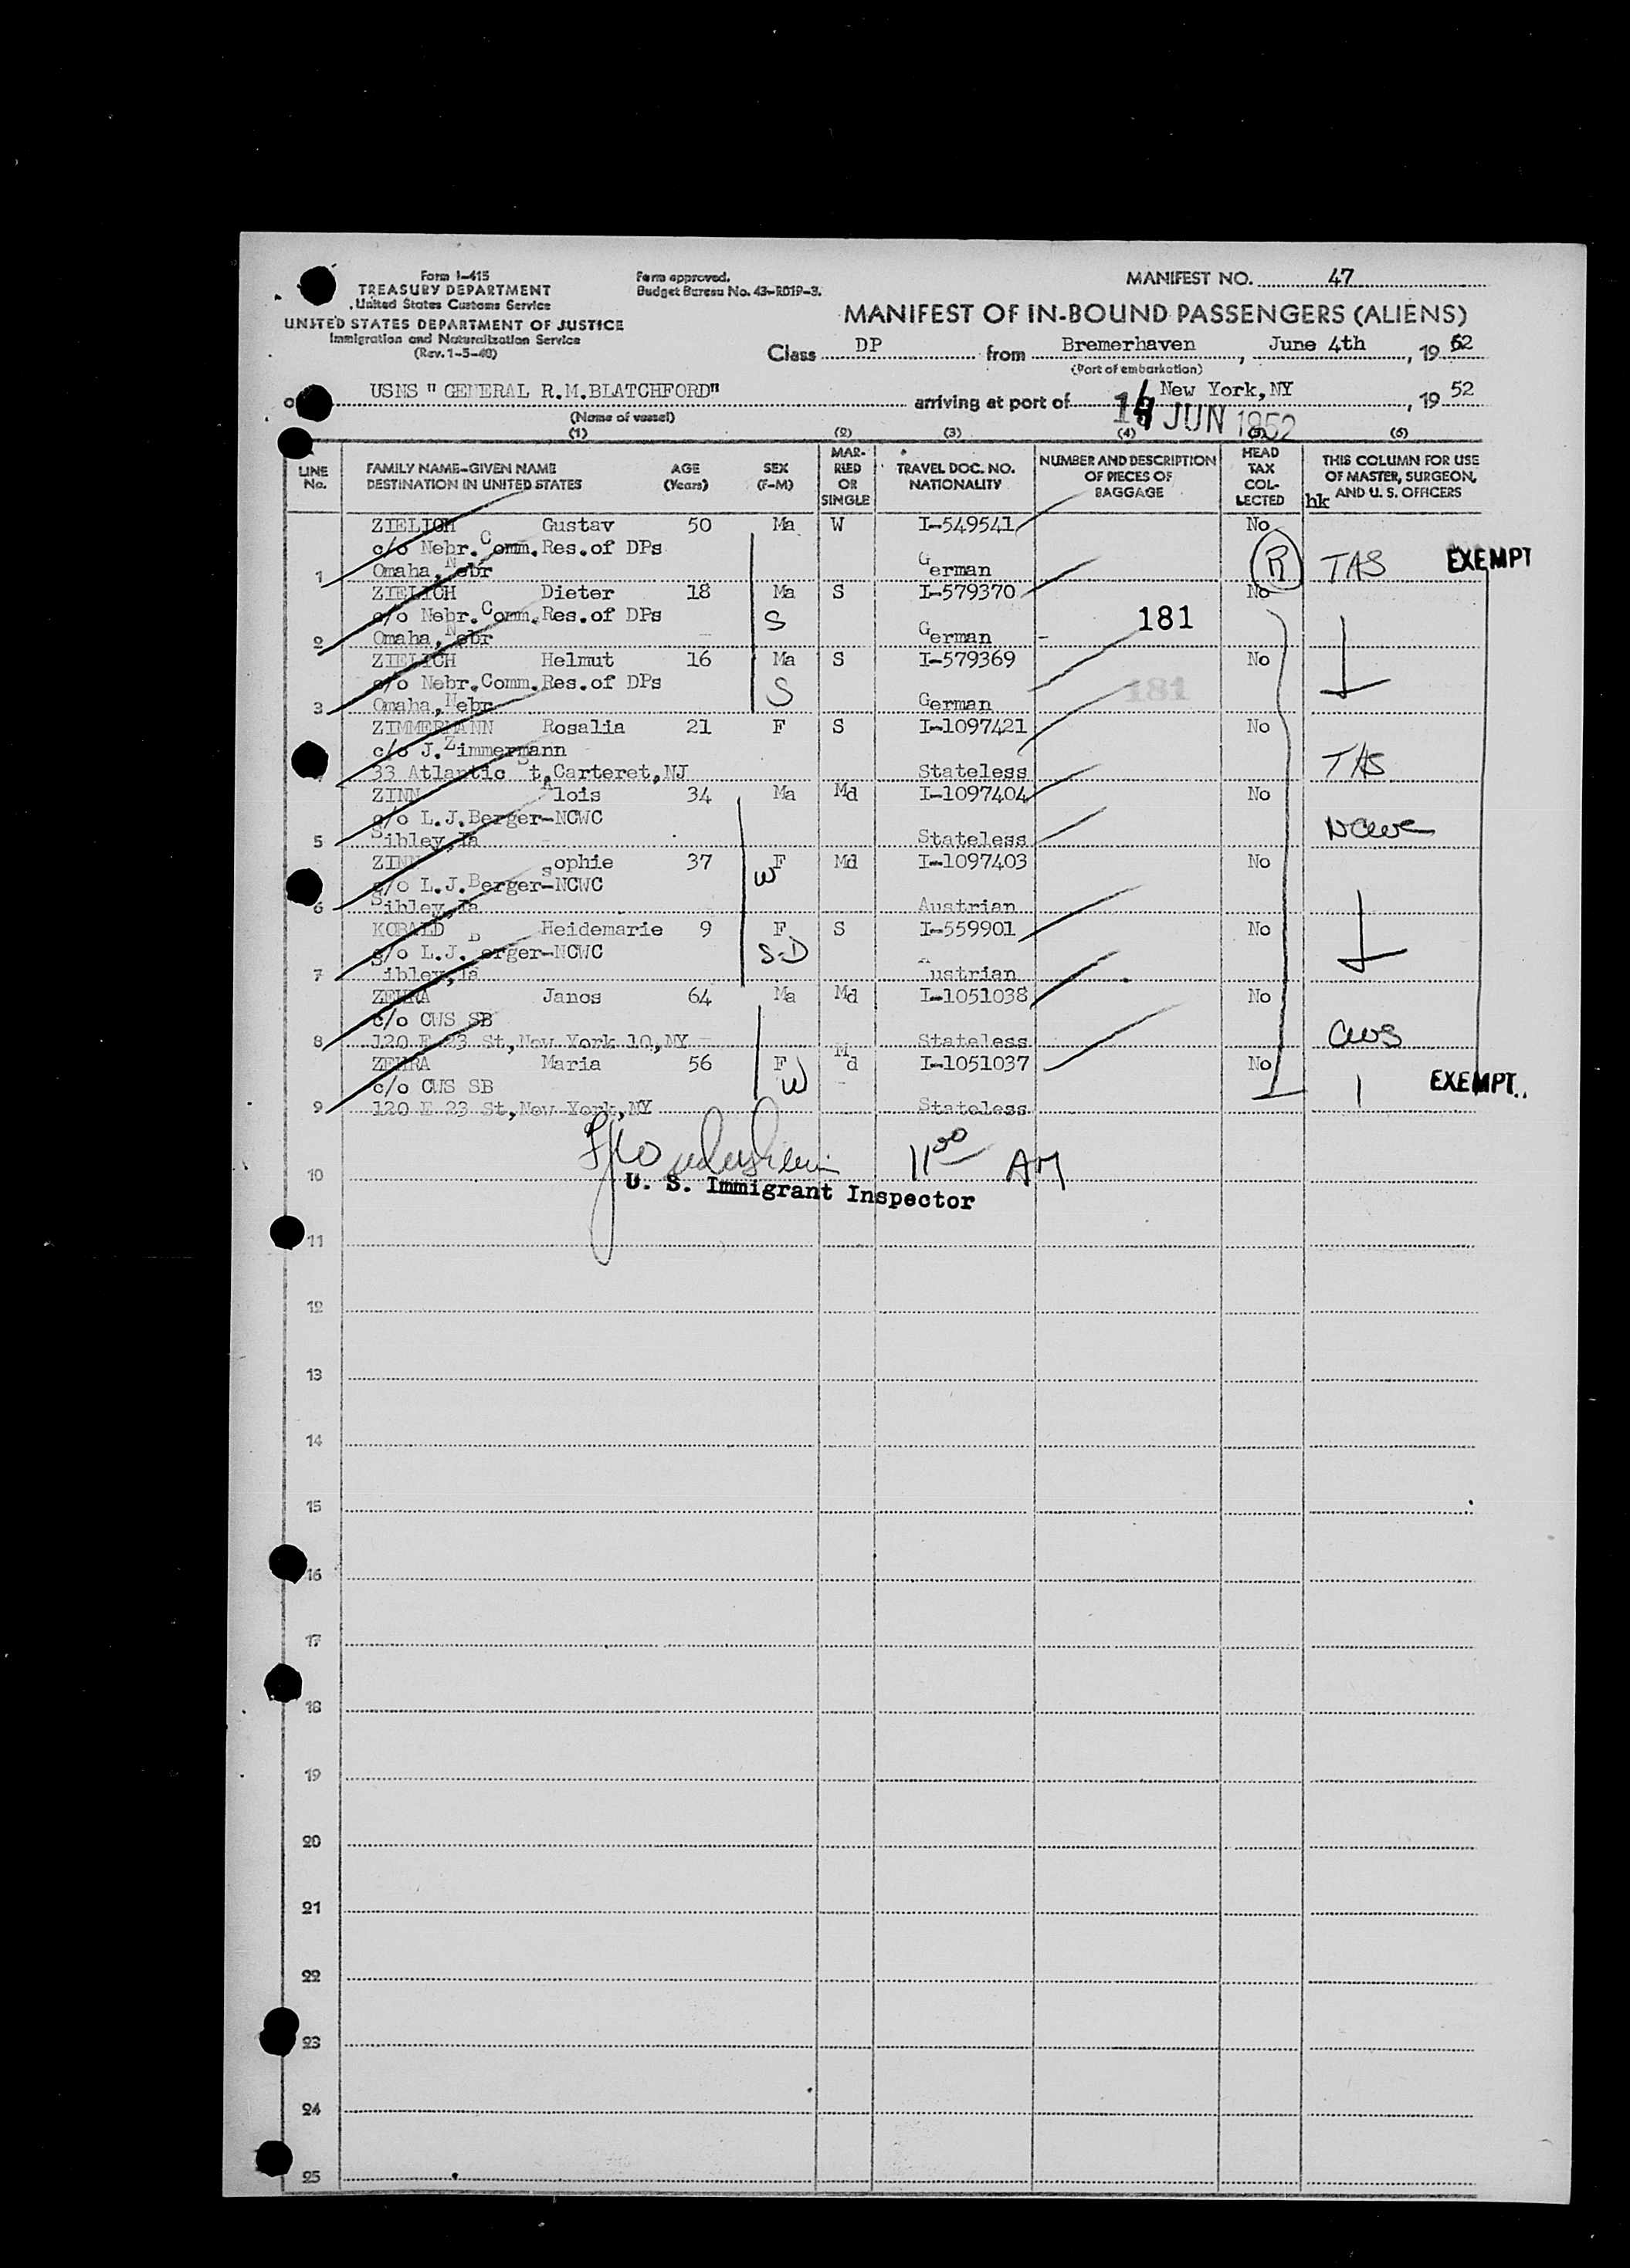 Form I-415
TREASURY DEPARTMENT
United States Customs Service
UNITED STATES DEPARTMENT OF JUSTICE
Immigration and Naturalization Service
(Rev. 1-5-48)
Form approved.
Budget Bureau No. 43-R019-3.
MANIFEST NO. 47
MANIFEST OF IN-BOUND PASSENGERS (ALIENS)
Class DP from Bremerhaven, June 4th, 19 52
(Port of embarkation)
USNS " GENERAL R.M.BLATCHFORD" arriving at port of New York,NY, 19 52
(Name of vessel)
JUN 1952
(1) (2) (3) (4) (5) (6)
LINE No. FAMILY NAME-GIVEN NAME DESTINATION IN UNITED STATES AGE (Years) SEX (F-M) MARRIED OR SINGLE TRAVEL DOC. NO. NATIONALITY NUMBER AND DESCRIPTION OF PIECES OF BAGGAGE HEAD TAX COLLECTED THIS COLUMN FOR USE OF MASTER, SURGEON, AND U. S. OFFICERS
hk
ZIELICH Gustav 50 Ma W I-549541 No
c/o Nebr.Comm.Res.of DPs
1 Omaha,Nebr German R TAS EXEMPT
ZIELICH Dieter 18 Ma S I-579370 No
c/o Nebr.Comm.Res.of DPs S 181
2 Omaha,Nebr German
ZIELICH Helmut 16 Ma S I-579369 No
c/o Nebr.Comm.Res.of DPs S 181
3 Omaha,Nebr German
ZIMMERMANN Rosalia 21 F S I-1097421 No
c/o J.Zimmermann
4 33 Atlantic St,Carteret,NJ Stateless TAS
ZINN Alois 34 Ma Md I-1097404 No
c/o L.J.Berger-NCWC
5 Sibley,Ia Stateless NCWC
ZINN Sophie 37 F Md I-1097403 No
c/o L.J.Berger-NCWC W
6 Sibley,Ia Austrian
KOBALD Heidemarie 9 F S I-559901 No
c/o L.J.Berger-NCWC S-D
7 Sibley,Ia Austrian
ZEHRA Janos 64 Ma Md I-1051038 No
c/o CWS SB
8 120 E 23 St,New York 10,NY Stateless CWS
ZEHRA Maria 56 F Md I-1051037 No
c/o CWS SB W EXEMPT
9 120 E 23 St,New York,NY Stateless
11 00 AM
10 U. S. Immigrant Inspector
11
12
13
14
15
16
17
18
19
20
21
22
23
24
25